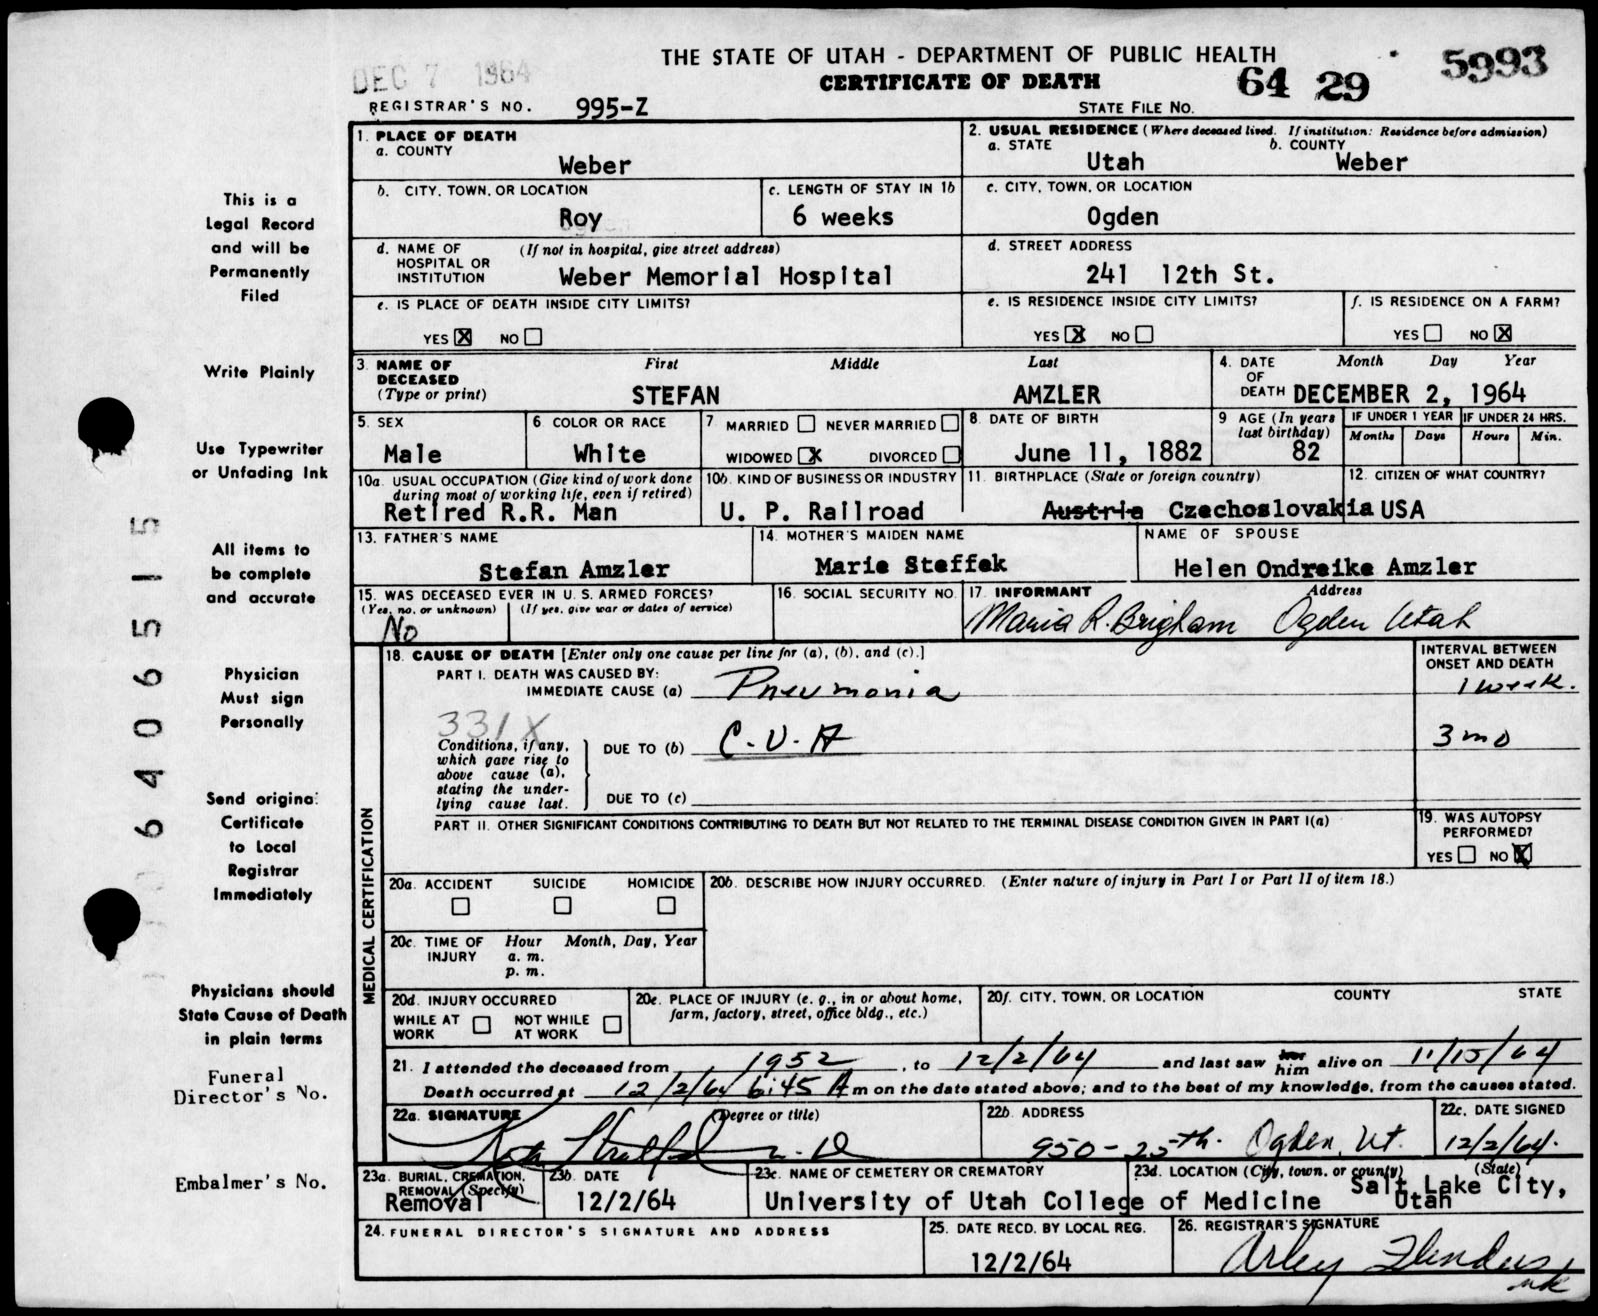 THE STATE OF UTAH - DEPARTMENT OF PUBLIC HEALTH
CERTIFICATE OF DEATH
DEC 7 1964
64 29 5993
REGISTRAR'S NO. 995-Z
STATE FILE NO.
This is a
Legal Record
and will be
Permanently
Filed
Write Plainly
Use Typewriter
or Unfading Ink
All items to
be complete
and accurate
Physician
Must sign
Personally
Send original
Certificate
to Local
Registrar
Immediately
Physicians should
State Cause of Death
in plain terms
Funeral
Director's No.
Embalmer's No.
640651515
1. PLACE OF DEATH
a. COUNTY
Weber
2. USUAL RESIDENCE (Where deceased lived. If institution: Residence before admission)
a. STATE b. COUNTY
Utah Weber
b. CITY, TOWN, OR LOCATION
Roy
c. LENGTH OF STAY IN 1b
6 weeks
c. CITY, TOWN, OR LOCATION
Ogden
d. NAME OF (If not in hospital, give street address)
HOSPITAL OR
INSTITUTION Weber Memorial Hospital
d. STREET ADDRESS
241 12th St.
e. IS PLACE OF DEATH INSIDE CITY LIMITS?
YES X NO
e. IS RESIDENCE INSIDE CITY LIMITS?
YES X NO
f. IS RESIDENCE ON A FARM?
YES NO X
3. NAME OF First Middle Last
DECEASED
(Type or print) STEFAN AMZLER
4. DATE Month Day Year
OF
DEATH DECEMBER 2, 1964
5. SEX
Male
6. COLOR OR RACE
White
7. MARRIED NEVER MARRIED
WIDOWED X DIVORCED
8. DATE OF BIRTH
June 11, 1882
9 AGE (In years
last birthday)
82
IF UNDER 1 YEAR
Months Days
IF UNDER 24 HRS.
Hours Min.
10a. USUAL OCCUPATION (Give kind of work done
during most of working life, even if retired)
Retired R.R. Man
10b. KIND OF BUSINESS OR INDUSTRY
U. P. Railroad
11. BIRTHPLACE (State or foreign country)
Austria Czechoslovakia
12. CITIZEN OF WHAT COUNTRY?
USA
13. FATHER'S NAME
Stefan Amzler
14. MOTHER'S MAIDEN NAME
Marie Steffek
NAME OF SPOUSE
Helen Ondreike Amzler
15. WAS DECEASED EVER IN U. S. ARMED FORCES?
(Yes, no, or unknown) (If yes, give war or dates of service)
No
16. SOCIAL SECURITY NO.
17. INFORMANT Address
Maria R. Brigham Ogden Utah
MEDICAL CERTIFICATION
18. CAUSE OF DEATH [Enter only one cause per line for (a), (b), and (c).]
INTERVAL BETWEEN
ONSET AND DEATH
PART I. DEATH WAS CAUSED BY:
IMMEDIATE CAUSE (a) Pneumonia 1 week.
331X
Conditions, if any,
which gave rise to
above cause (a),
stating the under-
lying cause last.
DUE TO (b) C.V.A 3 mo
DUE TO (c)
PART II. OTHER SIGNIFICANT CONDITIONS CONTRIBUTING TO DEATH BUT NOT RELATED TO THE TERMINAL DISEASE CONDITION GIVEN IN PART I(a)
19. WAS AUTOPSY
PERFORMED?
YES NO X
20a. ACCIDENT SUICIDE HOMICIDE
20b. DESCRIBE HOW INJURY OCCURRED. (Enter nature of injury in Part I or Part II of item 18.)
20c. TIME OF Hour Month, Day, Year
INJURY a. m.
p. m.
20d. INJURY OCCURRED
WHILE AT NOT WHILE
WORK AT WORK
20e. PLACE OF INJURY (e. g., in or about home,
farm, factory, street, office bldg., etc.)
20f. CITY, TOWN, OR LOCATION COUNTY STATE
21. I attended the deceased from 1952, to 12/2/64 and last saw her him alive on 11/15/64
Death occurred at 12/2/64 6:45 A m on the date stated above; and to the best of my knowledge, from the causes stated.
22a. SIGNATURE (Degree or title)
M.D
22b. ADDRESS
950-25th. Ogden, Ut.
22c. DATE SIGNED
12/2/64.
23a. BURIAL, CREMATION,
REMOVAL (Specify)
Removal
23b. DATE
12/2/64
23c. NAME OF CEMETERY OR CREMATORY
University of Utah College of Medicine
23d. LOCATION (City, town, or county) (State)
Salt Lake City,
Utah
24. FUNERAL DIRECTOR'S SIGNATURE AND ADDRESS
25. DATE RECD. BY LOCAL REG.
12/2/64
26. REGISTRAR'S SIGNATURE
Arley Flinders
mk